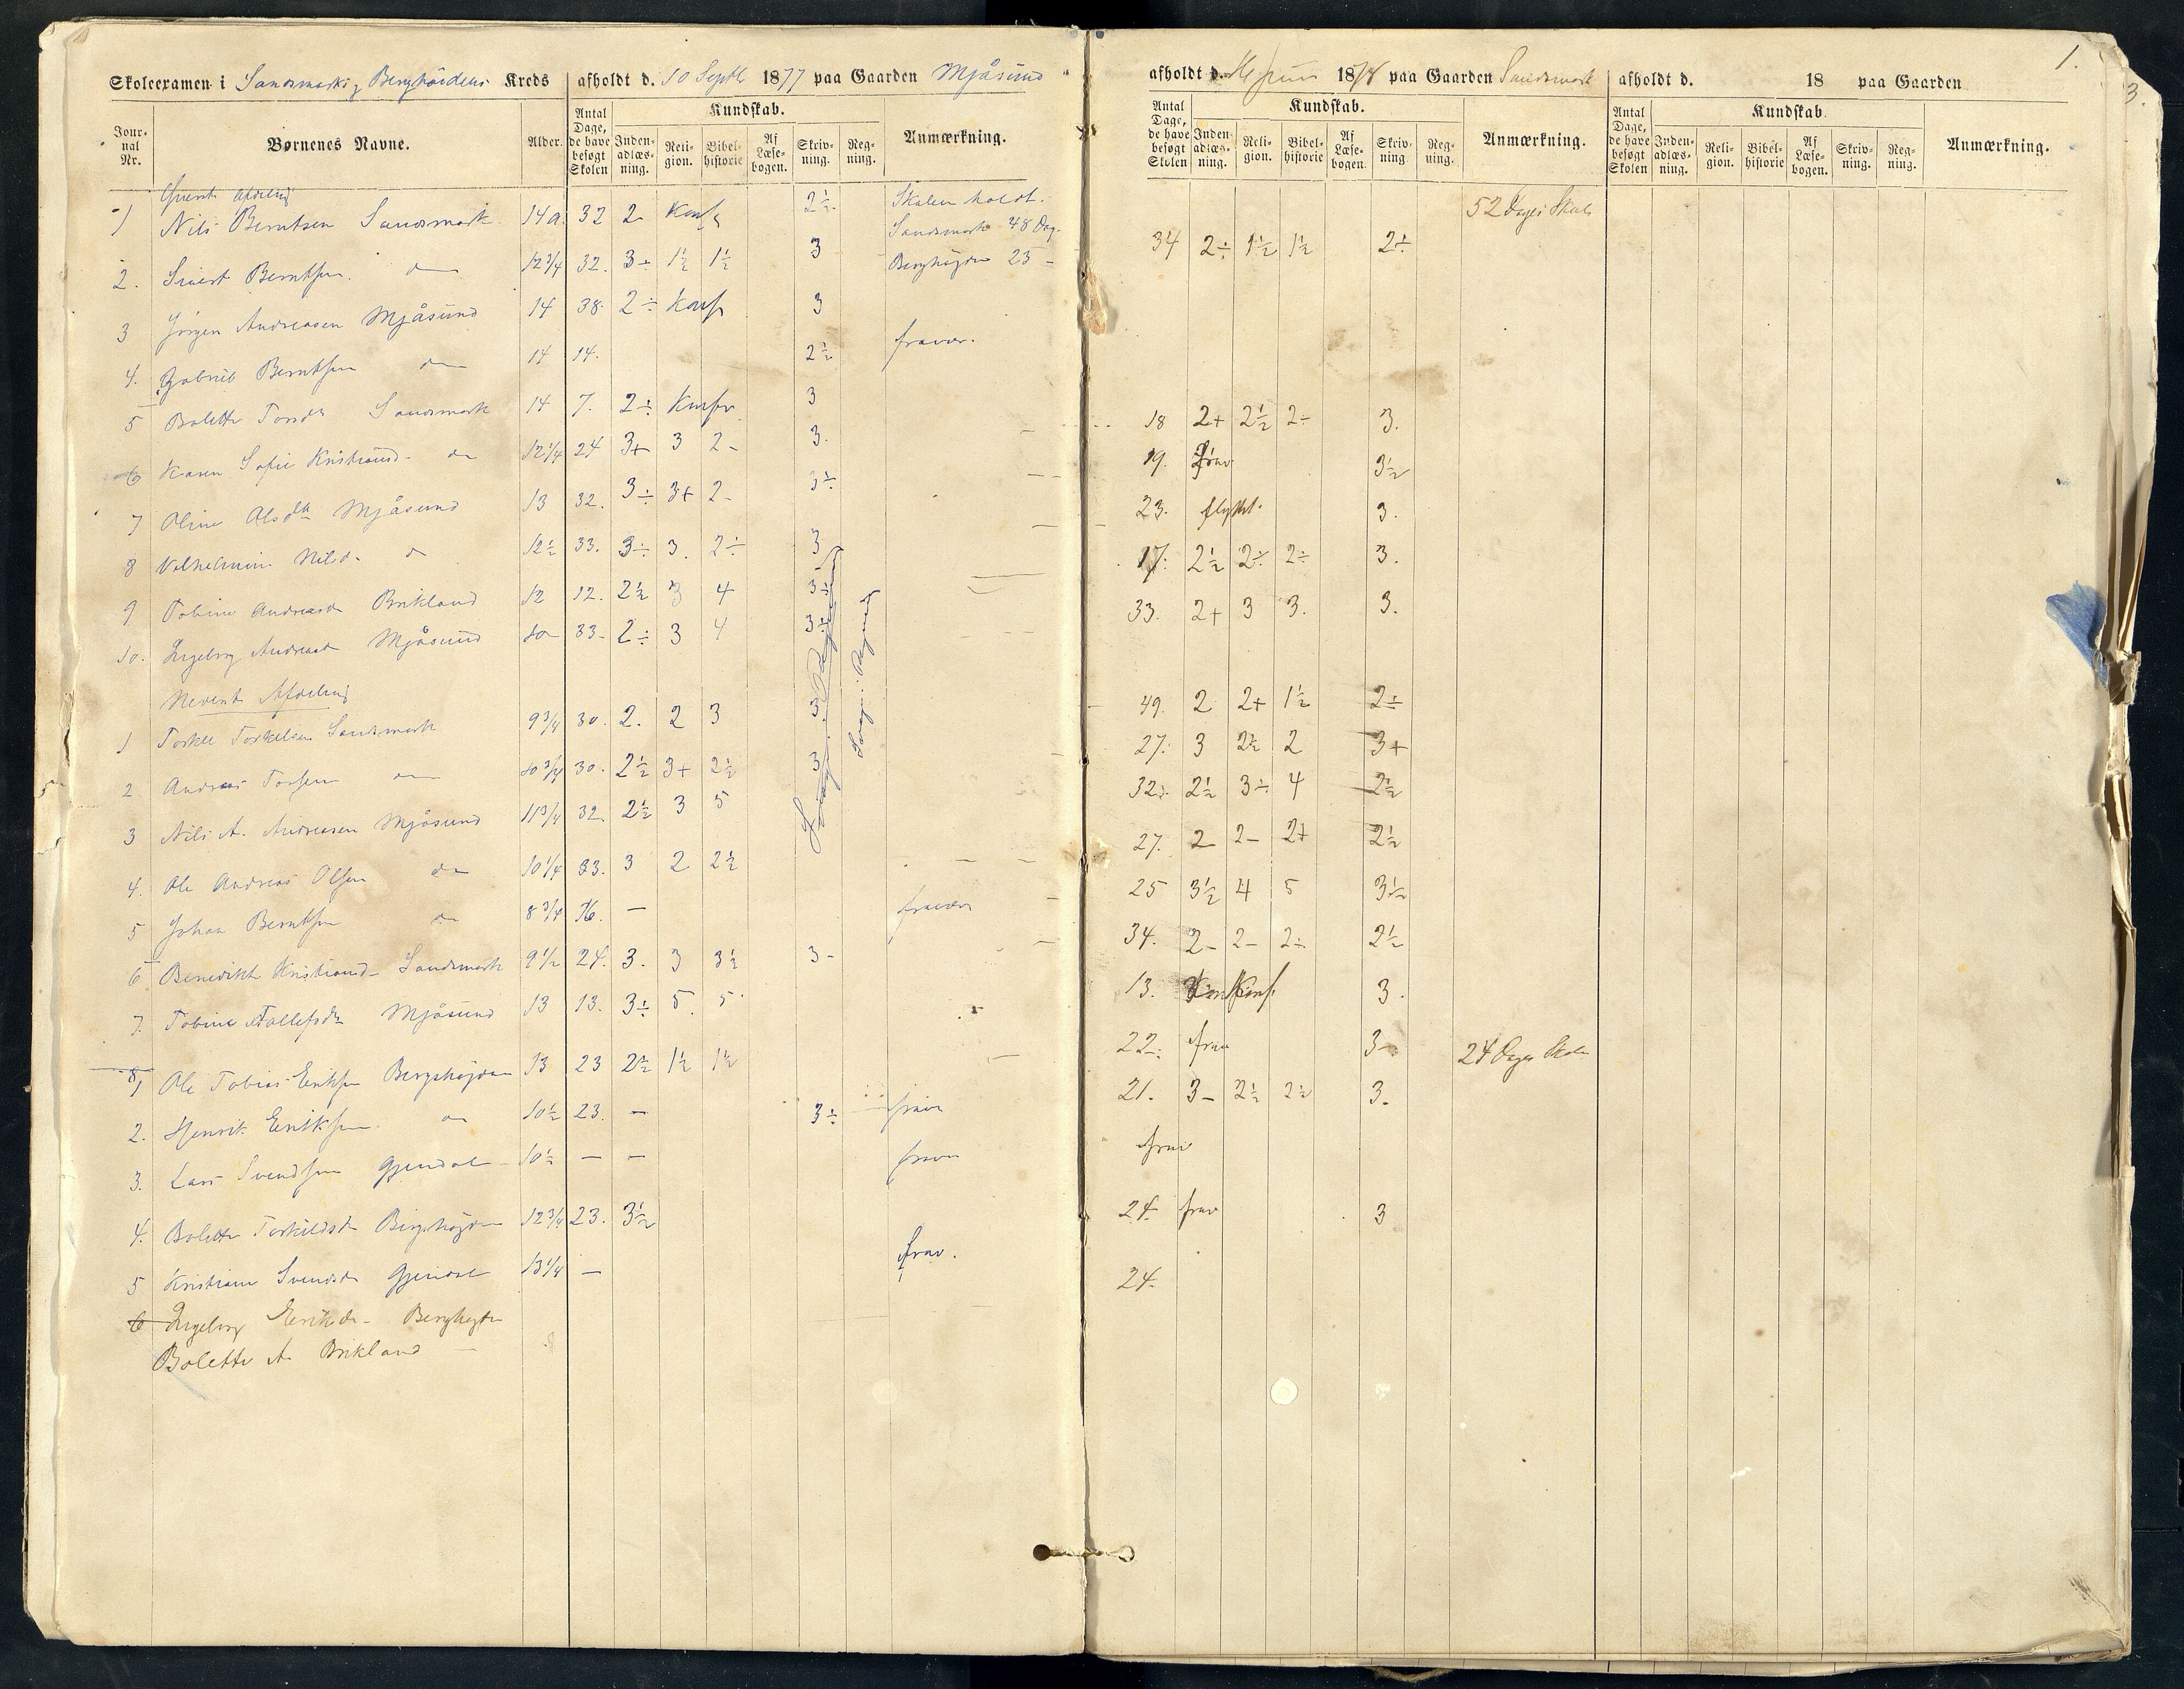 Skoleexamen i Sandsmark og Berghøidens Kreds afholdt d. 10 Septb 1877 paa Gaarden Mjåsund
Jour-nal Nr. Børnenes Navne. Alder. Antal Dage, de have besøgt Skolen Kundskab. Inden-adlæs-ning. Reli-gion. Bibel-historie Af Læse-bogen. Skriv-ning. Reg-ning. Anmærkning.
Øverste Afdeling
1 Nils Berntsen Sandsmark 14 a. 32 2 Konf. 2½ Skolen holdt.
Sandsmark 48 Dag.
2. Sivert Berntsen. do 12 3/4 32. 3÷ 1½ 1½ 3 Berghøgden 23 –
3 Jørgen Andreasen Mjåsund 14 38 2÷ Konf 3
4. Gabriel Berntsen do 14 14. 2½ fravær.
5 Bolette Torsdr Sandsmark 14 7. 2÷ Konf. 3
6 Karen Sofie Kristiansd. do 12 1/4 24 3+ 3 2– 3.
7 Oline Olsdtr Mjåsund 13 32. 3÷ 3+ 2– 3÷
8 Vilhelmine Nilsd. do 12½ 33. 3÷ 3. 2÷ 3
9 Tobine Andreasd Brikland 12 12. 2½ 3 4 3÷
10. Ingeborg Andreasd Mjåsund 10 33 2÷ 3 4 3÷
Nederste Afdeling
1 Torkel Torkelsen Sandsmark 9 3/4 30. 2. 2 3 3
2 Andreas Torsen do 10 3/4 30. 2½ 3+ 2½ 3
3 Nils A. Andreasen Mjåsund 11 3/4 32 2½ 3 5
4. Ole Andreas Olsen do 10 1/4 33. 3 2 2½
5 Johan Berntsen do 8 3/4 16. – fravær
6 Benedikte Kristiansd– Sandsmark 9 1/2 24. 3. 3 3½ 3–
7. Tobine Tallefsdr Mjåsund 13 13. 3÷ 5. 5
8/1 Ole Tobias Eriksen Bergshøjden 13 23 2½ 1½ 1½
2. Henrik Eriksen do 10½ 23. – 3÷ frav
3. Lars Svendsen Gjendal 10½ – – frav
4. Bolette Torkildsd Bergshøjden 12 3/4 23. 3½
5 Kristiane Svendsd Gjendal 13 1/4 – frav.
6 Ingeborg Eriksdr– Berghøgden
Bolette A. Brikland –
afholdt d. Juni 1878 paa Gaarden Sandsmark
Antal Dage, de have besøgt Skolen Kundskab. Inden-adlæs-ning. Reli-gion. Bibel-historie Af Læse-bogen. Skriv-ning Reg-ning. Anmærkning.
52 Dages Skole
34 2÷ 1½ 1½ 2÷
18 2+ 2½ 2÷ 3.
19. frav 3½
23. flyttet. 3.
17. 2½ 2÷ 2÷ 3.
33. 2+ 3 3. 3.
49. 2 2+ 1½ 2÷
27. 3 2½ 2 3+
32. 2½ 3÷ 4 2½
27. 2 2– 2+ 2½
25 3½ 4 5 3½
34. 2– 2– 2÷ 2½
13. Konf. 3.
22. frav 3– 24 Dages Skole
21. 3– 2½ 2½ 3.
frav
24. frav 3
24.
afholdt d. 18 paa Gaarden
Antal Dage, de have besøgt Skolen Kundskab. Inden-adlæs-ning. Reli-gion. Bibel-historie Af Læse-bogen. Skriv-ning. Reg-ning. Anmærkning.
1.
3.